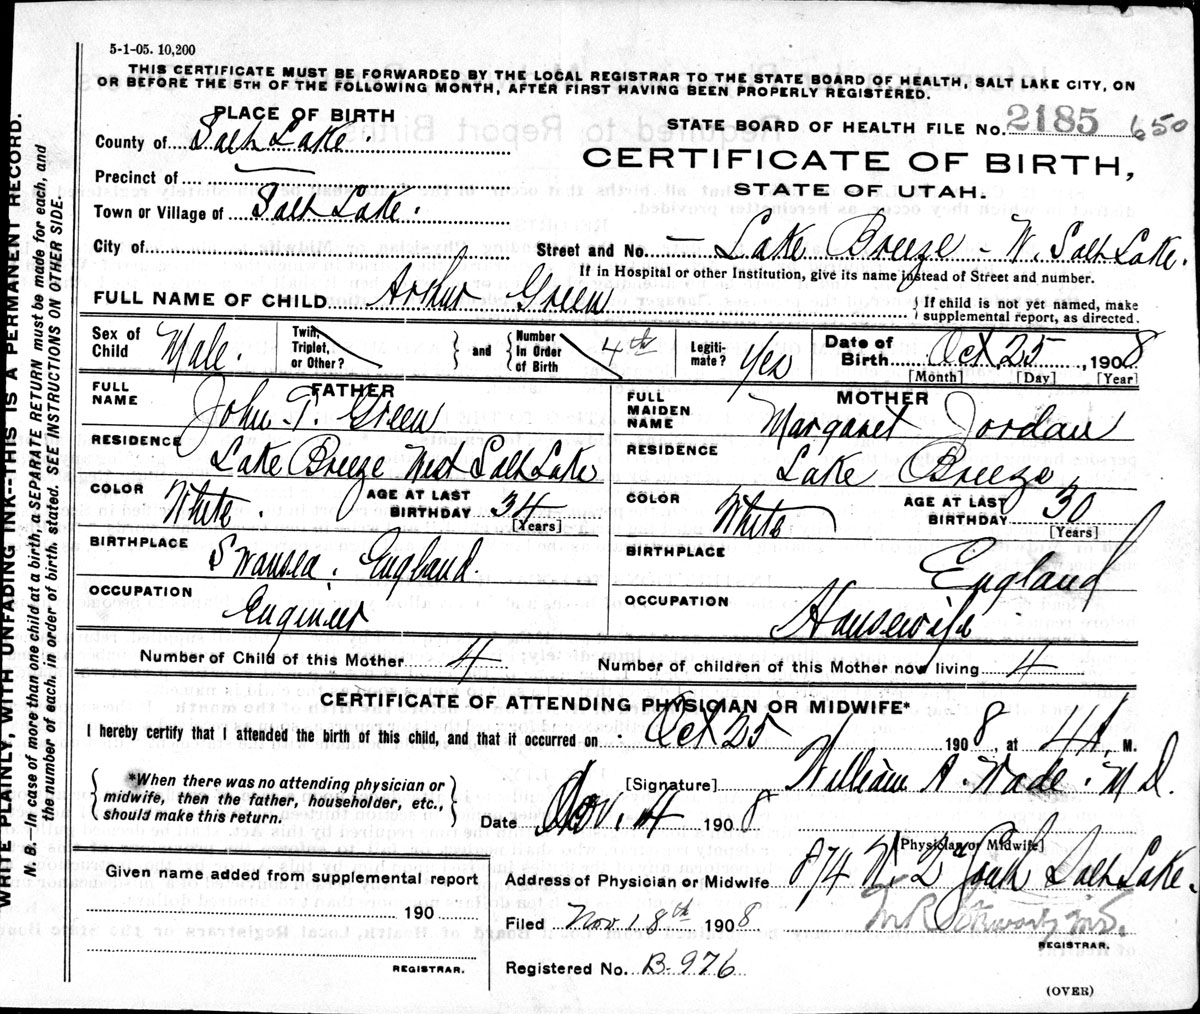 5-1-05. 10,200
THIS CERTIFICATE MUST BE FORWARDED BY THE LOCAL REGISTRAR TO THE STATE BOARD OF HEALTH, SALT LAKE CITY, ON
OR BEFORE THE 5TH OF THE FOLLOWING MONTH, AFTER FIRST HAVING BEEN PROPERLY REGISTERED.
WRITE PLAINLY, WITH UNFADING INK--THIS IS A PERMANENT RECORD.
N. B.--In case of more than one child at a birth, a SEPARATE RETURN must be made for each, and
the number of each, in order of birth, stated. SEE INSTRUCTIONS ON OTHER SIDE.
PLACE OF BIRTH
STATE BOARD OF HEALTH FILE No. 2185 650
County of Salt Lake.
CERTIFICATE OF BIRTH,
Precinct of
STATE OF UTAH.
Town or Village of Salt Lake.
City of Street and No. - Lake Breeze - W. Salt Lake.
If in Hospital or other Institution, give its name instead of Street and number.
FULL NAME OF CHILD Arthur Green
} If child is not yet named, make
supplemental report, as directed.
Sex of Child Male. Twin, Triplet, or Other? } and { Number In Order of Birth 4th Legiti-mate? Yes Date of Birth Oct 25, 1908
[Month] [Day] [Year]
FATHER
FULL NAME John T. Green
RESIDENCE Lake Breeze West Salt Lake
COLOR White. AGE AT LAST BIRTHDAY 34
[Years]
BIRTHPLACE Swansea. England.
OCCUPATION Engineer
MOTHER
FULL MAIDEN NAME Margaret Jordan
RESIDENCE Lake Breeze
COLOR White AGE AT LAST BIRTHDAY 30
[Years]
BIRTHPLACE England
OCCUPATION Housewife
Number of Child of this Mother 4 Number of children of this Mother now living 4
CERTIFICATE OF ATTENDING PHYSICIAN OR MIDWIFE*
I hereby certify that I attended the birth of this child, and that it occurred on Oct 25 1908, at 4 A. M.
{ *When there was no attending physician or
midwife, then the father, householder, etc.,
should make this return. }
[Signature] William A. Wade. M D.
Date Nov. 4 1908
[Physician or Midwife]
Given name added from supplemental report
190
REGISTRAR.
Address of Physician or Midwife 874 W. 2 South Salt Lake.
Filed Nov. 18th 1908
REGISTRAR.
Registered No. B-976
(OVER)